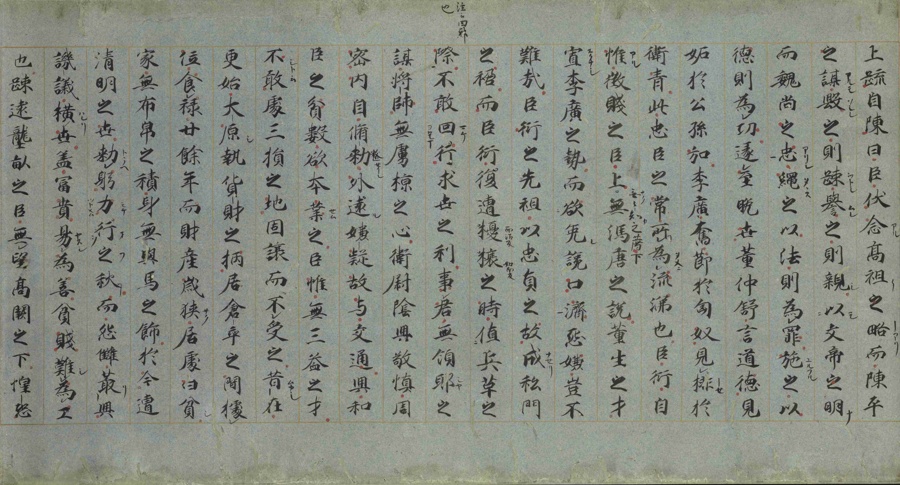 上疏自陳曰臣伏念高祖之略而陳平
之謀毀之則踈譽之則親以文帝之明
而魏尚之忠繩之以法則為罪施之以
德則為功逮至晚世董仲舒言道德見
妬於公孫弘李廣奮節於匈奴見排於
衛青此忠臣之常所為流涕也臣衍自
惟微賤之臣上無馮唐之說下無董生之才
寡李廣之執而欲免讒口濟怨嫌豈不
難哉臣衍之先祖以忠貞之故成私門
之禍而臣衍復遭擾攘之時值兵革之
際不敢回行求世之利事君無傾耶之
謀將師無虜掠之心衛尉陰興敬慎周
密內自脩勑外遠嫌疑故与交通興知
臣之貧數欲本業之臣惟無三益之才
不敢處三損之地固讓而不受之昔在
更始大原執貨財之柄居倉卒之間據
位食祿廿餘年而財產歲狹居處日貧
家無布帛之積身無輿馬之飾於今遭
清明之世勑躬力行之秋而怨讎叢興
譏議橫世盖富貴易為善貧賤難為工
也踈遠壟畝之臣無望高闕之下惶恐